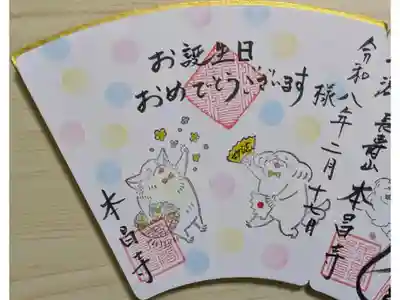 長寿山 本昌寺
令和八年二月十七日
様
お誕生日
おめでとうございます
本昌寺